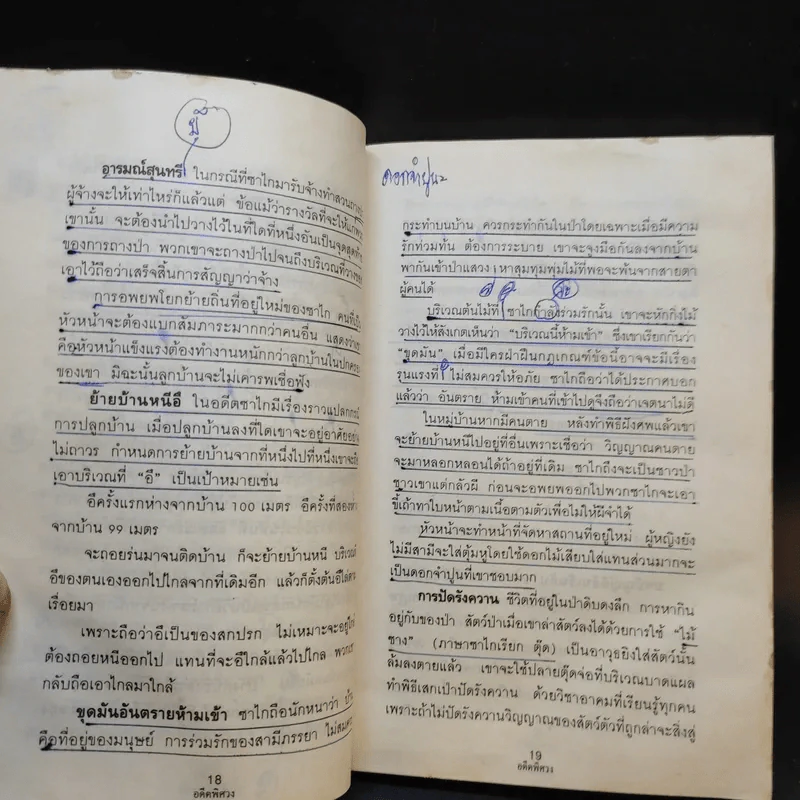 ขี้
อารมณ์สุนทรี ในกรณีที่ซาไกมารับจ้างทำสวน
ผู้จ้างจะให้เท่าไหร่ก็แล้วแต่ ข้อแม้ว่ารางวัลที่จะให้แก่พวก
เขานั้น จะต้องนำไปวางไว้ในที่ใดที่หนึ่งอันเป็นจุดสุดท้าย
ของการถางป่า พวกเขาจะถางป่าไปจนถึงบริเวณที่วางของ
เอาไว้ถือว่าเสร็จสิ้นการสัญญาว่าจ้าง
การอพยพโยกย้ายถิ่นที่อยู่ใหม่ของซาไก คนที่เป็น
หัวหน้าจะต้องแบกสัมภาระมากกว่าคนอื่น แสดงว่าเขา
คือหัวหน้าแข็งแรงต้องทำงานหนักกว่าลูกบ้านในปกครอง
ของเขา มิฉะนั้นลูกบ้านจะไม่เคารพเชื่อฟัง
ย้ายบ้านหนีอึ ในอดีตซาไกมีเรื่องราวแปลกกรณี
การปลูกบ้าน เมื่อปลูกบ้านลงที่ใดเขาจะอยู่อาศัยอย่าง
ไม่ถาวร กำหนดการย้ายบ้านจากที่หนึ่งไปที่หนึ่งเขาจะถือ
เอาบริเวณที่ "อึ" เป็นเป้าหมายเช่น
อึครั้งแรกห่างจากบ้าน 100 เมตร อึครั้งที่สองห่าง
จากบ้าน 99 เมตร
จะถอยร่นมาจนติดบ้าน ก็จะย้ายบ้านหนี บริเวณที่
อึของตนเองออกไปไกลจากที่เดิมอีก แล้วก็ตั้งต้นอึไล่ตาม
เรื่อยมา
เพราะถือว่าอึเป็นของสกปรก ไม่เหมาะจะอยู่ใกล้
ต้องถอยหนีออกไป แทนที่จะอึใกล้แล้วไปไกล พวกเขา
กลับถือเอาไกลมาใกล้
ขุดมันอันตรายห้ามเข้า ซาไกถือนักหนาว่า บ้าน
คือที่อยู่ของมนุษย์ การร่วมรักของสามีภรรยา ไม่สมควร
18
อดีตพิศวง
ดอกจำปูน
กระทำบนบ้าน ควรกระทำกันในป่าโดยเฉพาะเมื่อมีความ
รักท่วมท้น ต้องการระบาย เขาจะจูงมือกันลงจากบ้าน
พากันเข้าป่าแสวงหาสุมทุมพุ่มไม้ที่พอจะพ้นจากสายตา
ผู้คนได้
บริเวณต้นไม้ที่ ซาไกกำลังร่วมรักนั้น เขาจะหักกิ่งไม้
วางไว้ให้สังเกตเห็นว่า "บริเวณนี้ห้ามเข้า" ซึ่งเขาเรียกกันว่า
"ขุดมัน" เมื่อมีใครฝ่าฝืนกฎเกณฑ์ข้อนี้อาจจะมีเรื่อง
รุนแรงที่ ไม่สมควรให้อภัย ซาไกถือว่าได้ประกาศบอก
แล้วว่า อันตราย ห้ามเข้าคนที่เข้าไปดูจึงถือว่าเจตนาไม่ดี
ในหมู่บ้านหากมีคนตาย หลังทำพิธีฝังศพแล้วเขา
จะย้ายบ้านหนีไปอยู่ที่อื่นเพราะเชื่อว่า วิญญาณคนตาย
จะมาหลอกหลอนได้ถ้าอยู่ที่เดิม ซาไกถึงจะเป็นชาวป่า
ชาวเขาแต่กลัวผี ก่อนจะอพยพออกไปพวกซาไกจะเอา
ขี้เถ้าทาใบหน้าตามเนื้อตามตัวเพื่อไม่ให้ผีจำได้
หัวหน้าจะทำหน้าที่จัดหาสถานที่อยู่ใหม่ ผู้หญิงยัง
ไม่มีสามีจะใส่ตุ้มหูโดยใช้ดอกไม้เสียบใส่แทนส่วนมากจะ
เป็นดอกจำปูนที่เขาชอบมาก
การปัดรังควาน ชีวิตที่อยู่ในป่าดิบดงลึก การหากิน
อยู่กับของป่า สัตว์ป่าเมื่อเขาล่าสัตว์ลงได้ด้วยการใช้ "ไม้
ซาง" (ภาษาซาไกเรียก ตุ๊ด) เป็นอาวุธยิงใส่สัตว์นั้น
ล้มลงตายแล้ว เขาจะใช้ปลายตุ๊ดจ่อที่บริเวณบาดแผล
ทำพิธีเสกเป่าปัดรังควาน ด้วยวิชาอาคมที่เรียนรู้ทุกคน
เพราะถ้าไม่ปัดรังควานวิญญาณของสัตว์ตัวที่ถูกล่าจะสิงสู่
19
อดีตพิศวง